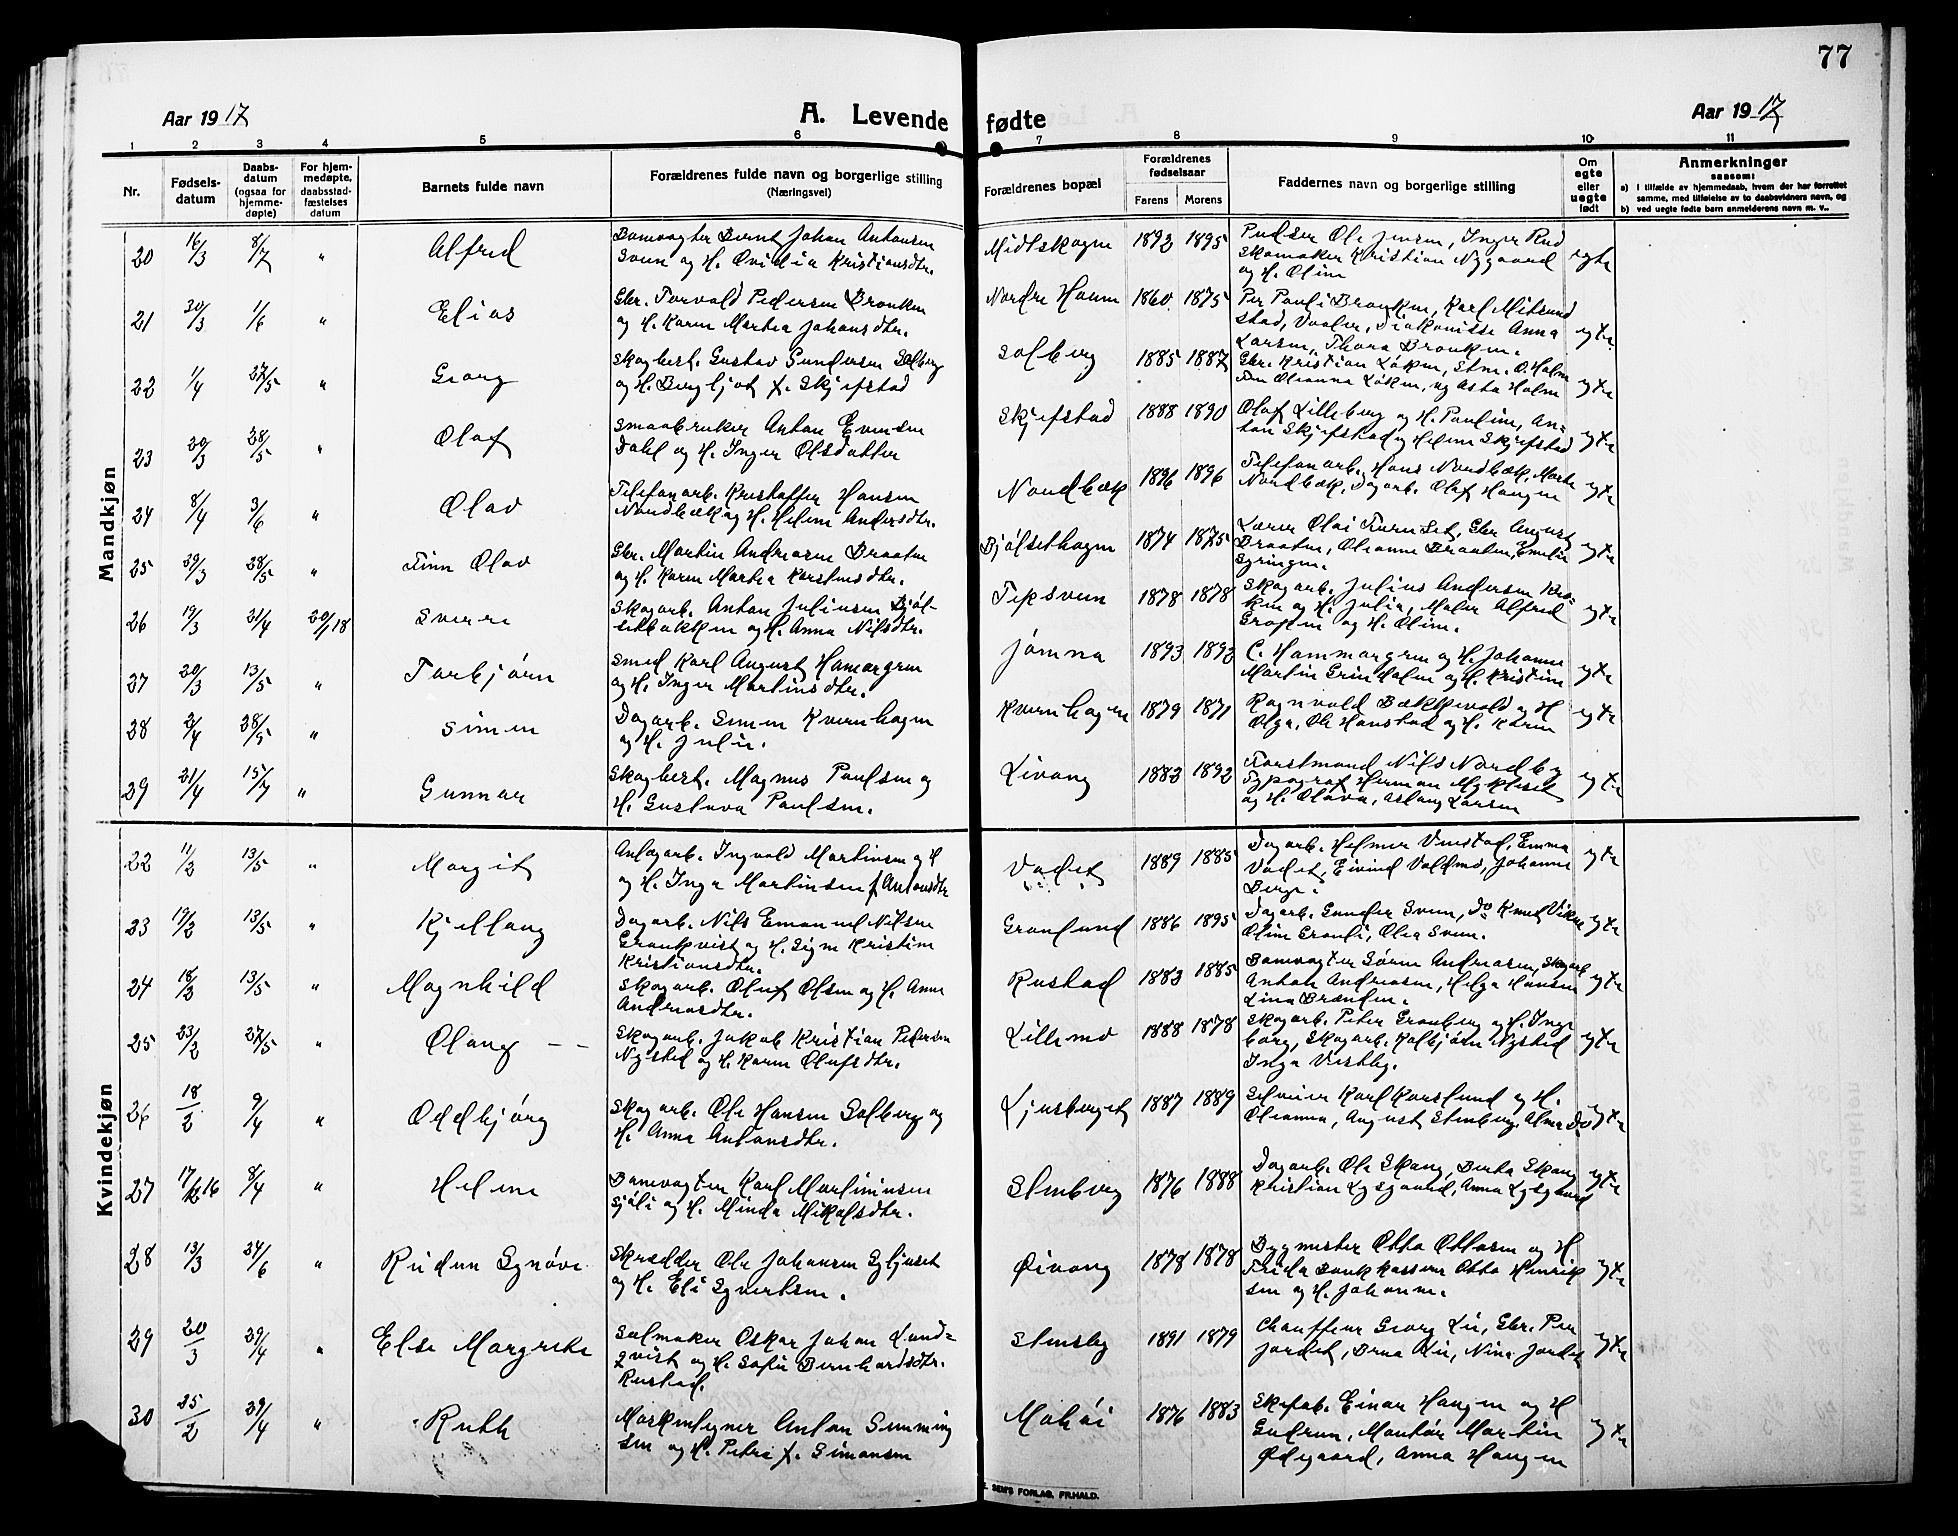 77
Aar 1917
A. Levende fødte
Aar 1917
1 2 3 4 5 6 7 8 9 10 11
Nr.
Fødsels-
datum
Daabs-
datum
(ogsaa for
hjemme-
døpte)
For hjem-
medøpte,
daabsstad-
fæstelses
datum
Barnets fulde navn
Forældrenes fulde navn og borgerlige stilling
(Næringsvei)
Forældrenes bopæl
Forældrenes
fødselsaar
Farens Morens
Faddernes navn og borgerlige stilling
Om
egte
eller
uegte
født
Anmerkninger
sansom:
a) I tilfælde av hjemmedaab, hvem der har forrettet
samme, med tilføielse av to daabsvidners navn, og
b) ved uegte fødte barn anmelderens navn m. v..
Mandkjøn
20 16/3 8/7 " Alfred
Banevogter Bernt Johan Antonsen
Sveen og H. Ovidia Kristiansdtr.
Midtskogen 1892 1895
Pudser Ole Jensen, Inger Rud
Skomaker Kristian Nygaard
og H. Oline
egte
21 30/3 1/6 " Elias
Gbr. Torvald Pedersen Bronken
og H. Karen Martea Johansdtr.
Nordre Haum 1860 1875
Per Pauli Bronken, Karl Mitsund
stad, Vaaler, Diakonisse Anna
Larsen, Thora Bronken.
egte
22 1/4 27/5 " Georg
Skogbest. Gustav Gundersen Solberg
og H. Bergljot f. Skjefstad
Solberg 1885 1887
Gbr. Kristian Løken, Stm. O. Holm
Fru Oleanna Løken, og Asta Holm
egte
23 20/3 28/5 " Olaf
Smaabruker Anton Evensen
Dahl og H. Inger Olsdatter
Skjefstad 1888 1890
Olaf Lilleberg og H. Pauline, An-
ton Skjefstad og Helene Skjefstad
egte
24 8/4 3/6 " Olav
Telefonarb. Kristoffer Hansen
Nordbæk og H. Helene Andersdtr.
Nordbæk 1896 1896
Telefonarb. Hans Nordbæk, Marte
Nordbæk, Dagarb. Olaf Haugen
egte
25 29/3 28/5 " Finn Olav
Gbr. Martin Andreasen Braaten
og H. Karen Martea Karstensdtr.
Bjølsethagen 1874 1875
Lærer Olai Furuset, Gbr August
Braaten, Oleanne Braaten, Emilie
Syringen.
egte
26 19/3 21/4 20/1 18 Sverre
Skogarb. Anton Juliusen Bjøl-
setbakken og H. Anna Nilsdtr.
Tepsveen 1878 1878
Skogarb. Julius Andersen
og H. Julia, Maler Alfred
og H. Oline.
egte
27 20/3 13/5 " Torbjørn
Smed Karl August Hamargren
og H. Inger Martinsdtr.
Jømna 1893 1892
C. Hammargren og H. Johanne
Martin Grindalen og H. Kristine
egte
28 2/4 28/5 " Simen
Dagarb. Simen Kvernhagen
og H. Julie.
Kvernhagen 1879 1871
Ragnvald Bækkevold og H
Olga, Ole Hanstad og H. Karen
egte
29 21/4 15/7 " Gunnar
Skogbest. Magnus Paulsen og
H. Gustava Paulsen.
Livang 1883 1892
Forstmand Nils Nordby
Typograf Herman Mykleset
og H. Olava, Aslaug Larsen
egte
Kvindekjøn
22 11/2 13/5 " Margit
Anlægarb. Ingvald Martinsen og H
og H. Inga Martinsen f Antonsdtr
Vadet 1889 1885
Dagarb. Helmer Vinstad, Emma
Vadet, Eivind Voldmo, Johanne
Berge.
egte
23 19/2 13/5 " Kjellaug
Dagarb. Nils Emanuel Nilsen
Grankvist og H. Signe Kristine
Kristiansdtr.
Granlund 1886 1895
Dagarb. Gunder Sveen, Do Knut Viken
Oline Granli, Olea Sveen.
egte
24 18/2 13/5 " Magnhild
Skogarb. Oluf Olsen og H. Anne
Andreasdtr.
Rustad 1883 1885
Banevogter Søren Andreasen, Skogarb
Anton Andreasen, Helga Hansen
Lina Brænden.
egte
25 23/2 27/5 " Olaug — —
Skogarb. Jakob Kristian Pedersen
Nysted og H. Karen Olufsdtr.
Lillemo 1888 1878
Skogarb. Peter Granberg og H. Inge
borg, Skogarb. Kolbjørn Nysted
Inga Vestby.
egte
26 18/2 9/4 " Oddbjørg
Skogarb. Ole Hansen Solberg og
H. Anna Antonsdtr.
Ljusberget 1887 1889
Seloeier Karl Karslund og H.
Oleanna, August Stenberg, Alma Do
egte
27 17/12 16 8/4 " Helene
Banevogter Karl Martininsen
Sjøli og H. Minda Mikalsdtr.
Stenberg 1876 1888
Dagarb. Ole Skaug, Berta Skaug
Kristian Lysgaard, Anna Lysgaard
egte
28 13/3 24/6 " Reidun Synøve
Skrædder Ole Johansen Egljuset
og H. Eli Syvertsen.
Øivang 1878 1878
Bygmester Otto Ottosen og H
Frida Bankkasserer Otto Henrik
sen og H. Johanne.
egte
29 20/3 29/4 " Else Margrete
Salmaker Oskar Johan Lund-
qvist og H. Sofie Bernhardsdtr.
Rustad.
Stensby 1891 1879
Chauffeur Georg Lie, Gbr. Per
Jordet, Lie, Nina Jordet
egte
30 25/2 29/4 " Ruth
Morkentegner Anton Simming
sen og H. Petra f. Simonsen
Mohøi 1876 1883
Skofab. Einar Haugen og H
Gudrun, Montør Martin
Ødegaard, Anna Haugen
egte
E. SEM'S FORLAG, FR.HALD.